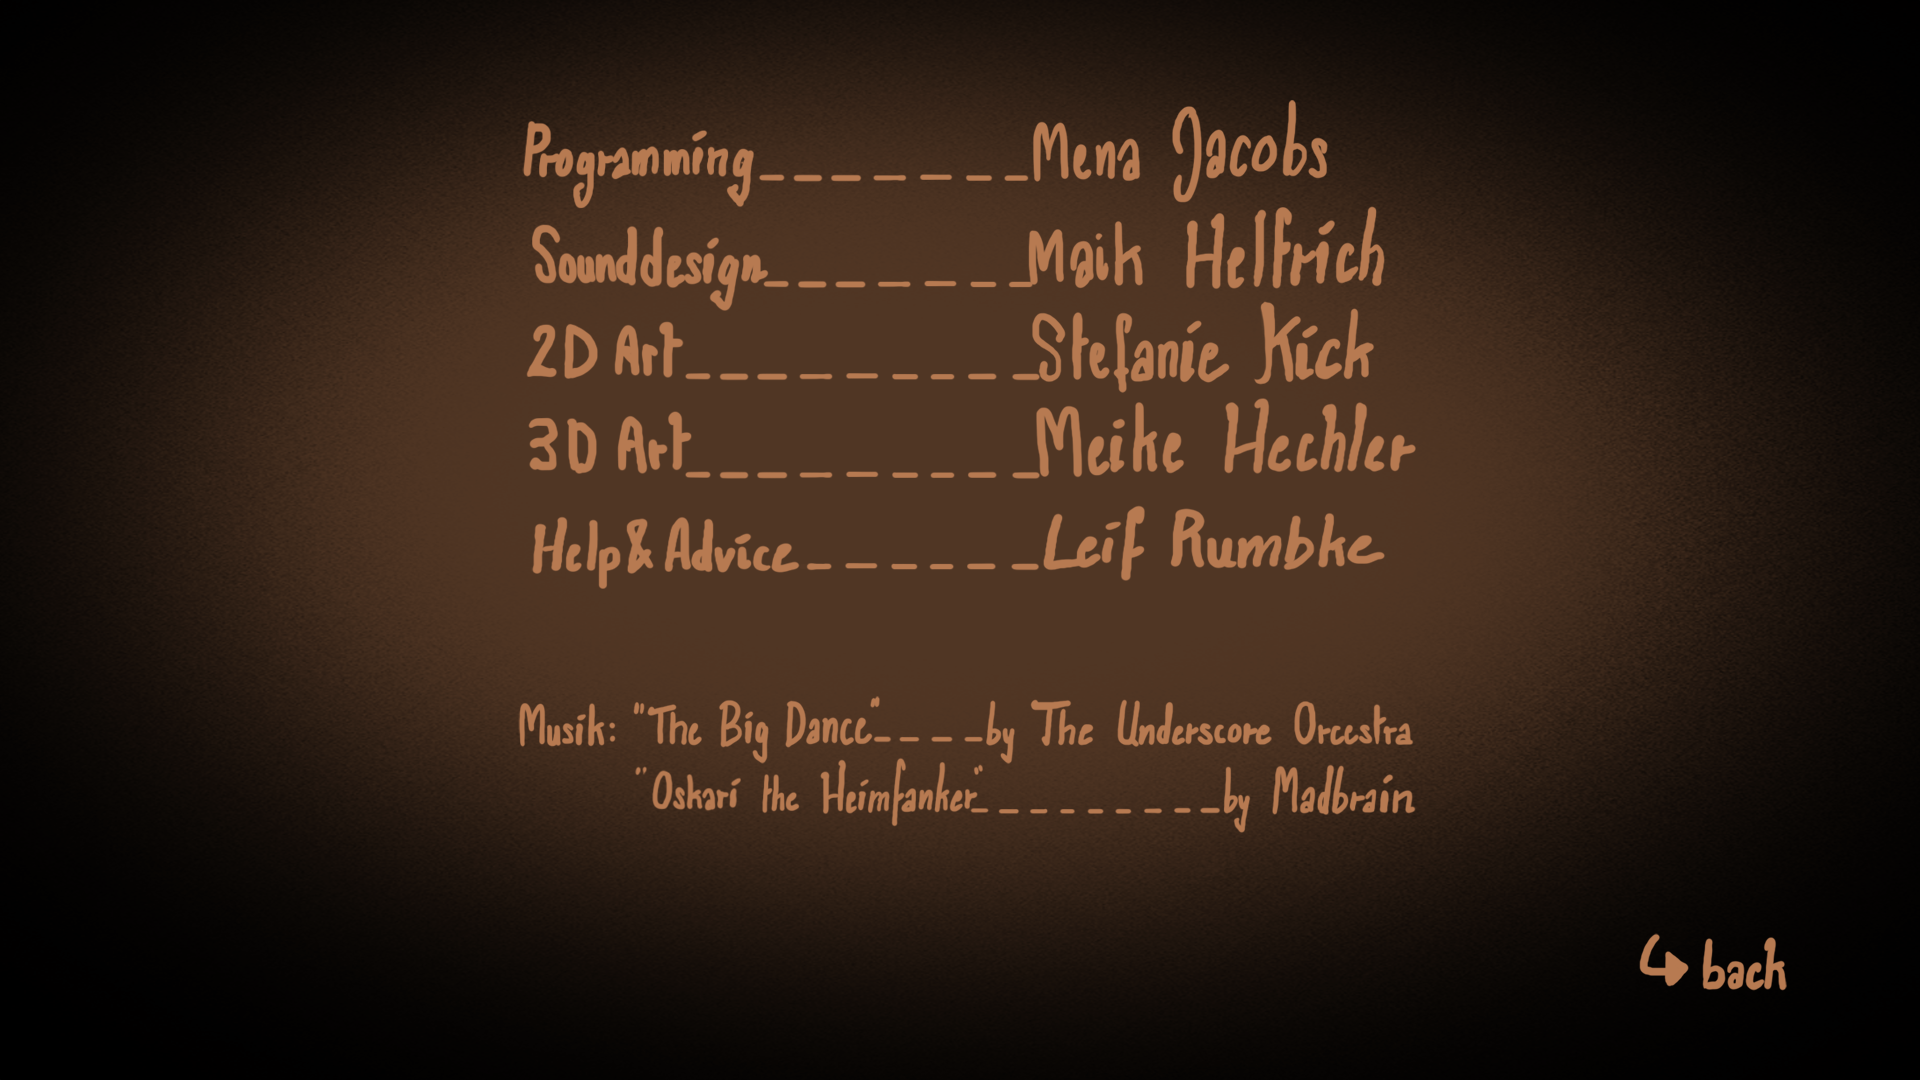 Programming_______Mena Jacobs
Sounddesign_______Maik Helfrich
2D Art_________Stefanie Kick
3D Art_________Meike Hechler
Help& Advice______Leif Rumbke
Musik: "The Big Dance"____by The Underscore Orcestra
"Oskari the Heimfanker"_________by Madbrain
back